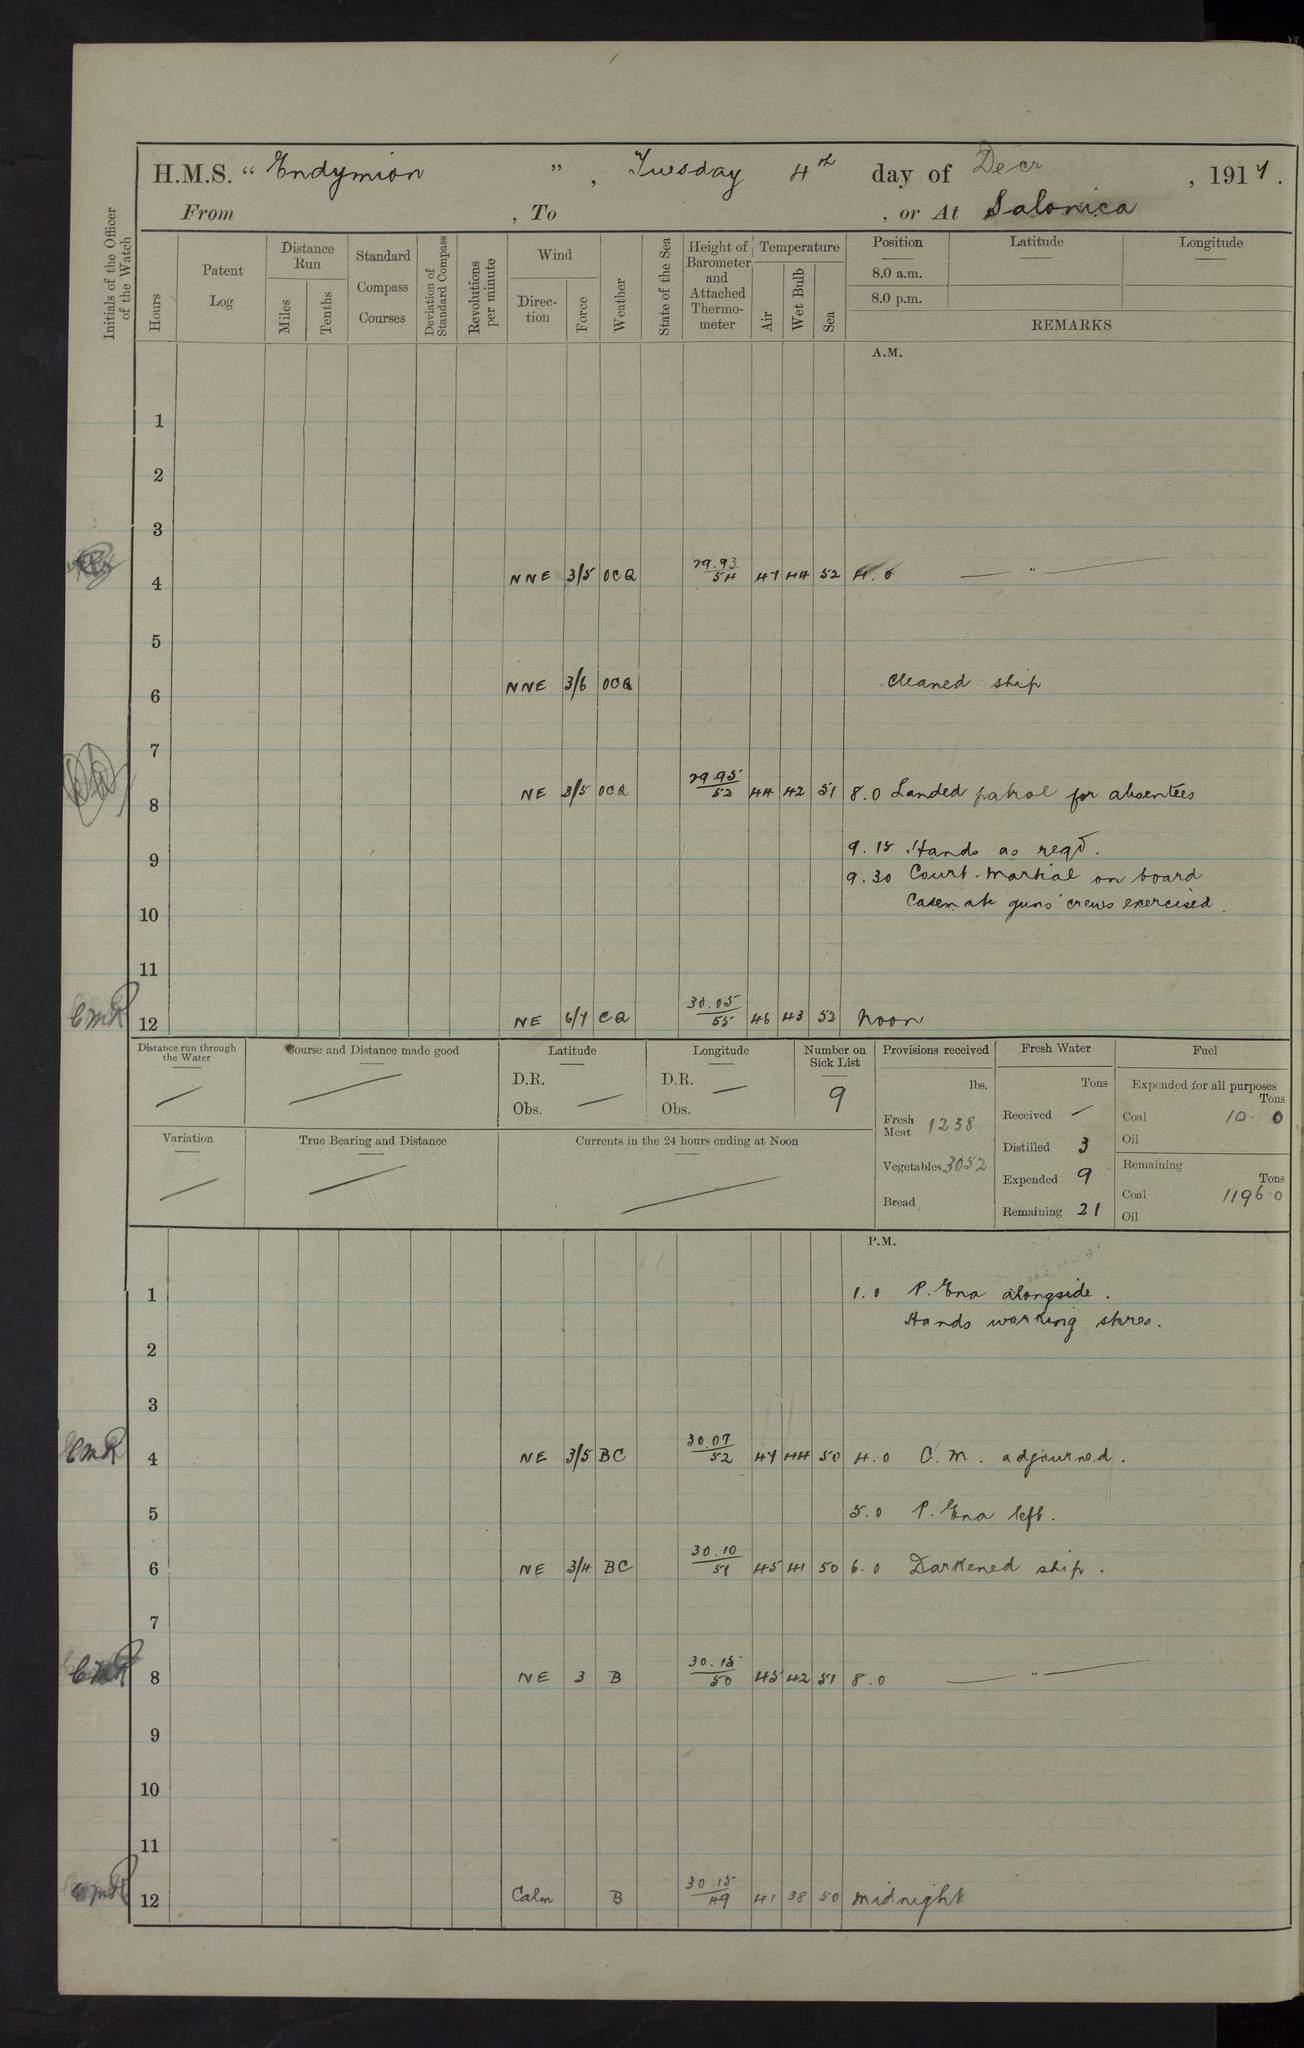 H.M.S. " Endymion ", Tuesday 4th day of Decr, 1917.
From , To , or At Salonica
Initials of the Officer of the Watch
Hours
Patent Log
Distance Run
Miles
Tenths
Standard Compass Courses
Deviation of Standard Compass
Revolutions per minute
Wind
Direc-tion
Force
Weather
State of the Sea
Height of Barometer and Attached Thermo-meter
Temperature
Air
Wet Bulb
Sea
Position
8.0 a.m.
8.0 p.m.
Latitude
Longitude
REMARKS
A.M.
1
2
3
4 NNE 3/5 OCQ 29.93/54 47 44 52 4.0 — " —
5
6 NNE 3/6 OCQ Cleaned ship
7
8 NE 3/5 OCQ 29.95/52 44 42 51 8.0 Landed patrol for absentees
9.15 Hands as reqd.
9
9.30 Court-Martial on board
Casemate guns crews exercised.
10
11
CMR 12 NE 6/7 CQ 30.05/55 46 43 52 Noon
Distance run through the Water
—
Course and Distance made good
—
Latitude
D.R.
Obs. —
Longitude
D.R. —
Obs.
Number on Sick List
9
Provisions received
lbs.
Fresh Meat 1238
Vegetables 3052
Bread
Fresh Water
Tons
Received —
Distilled 3
Expended 9
Remaining 21
Fuel
Expended for all purposes
Tons
Coal 10 0
Oil
Remaining
Tons
Coal 1196.0
Oil
Variation
—
True Bearing and Distance
—
Currents in the 24 hours ending at Noon
—
P.M.
1 1.0 P. Ena alongside.
Hands working stores.
2
3
CMR 4 NE 3/5 BC 30.07/52 47 44 50 4.0 C.M. adjourned.
5 5.0 P. Ena left.
6 NE 3/4 BC 30.10/51 45 41 50 6.0 Darkened ship.
7
CMR 8 NE 3 B 30.15/50 45 42 51 8.0 — " —
9
10
11
CMR 12 Calm B 30.15/49 41 38 50 Midnight